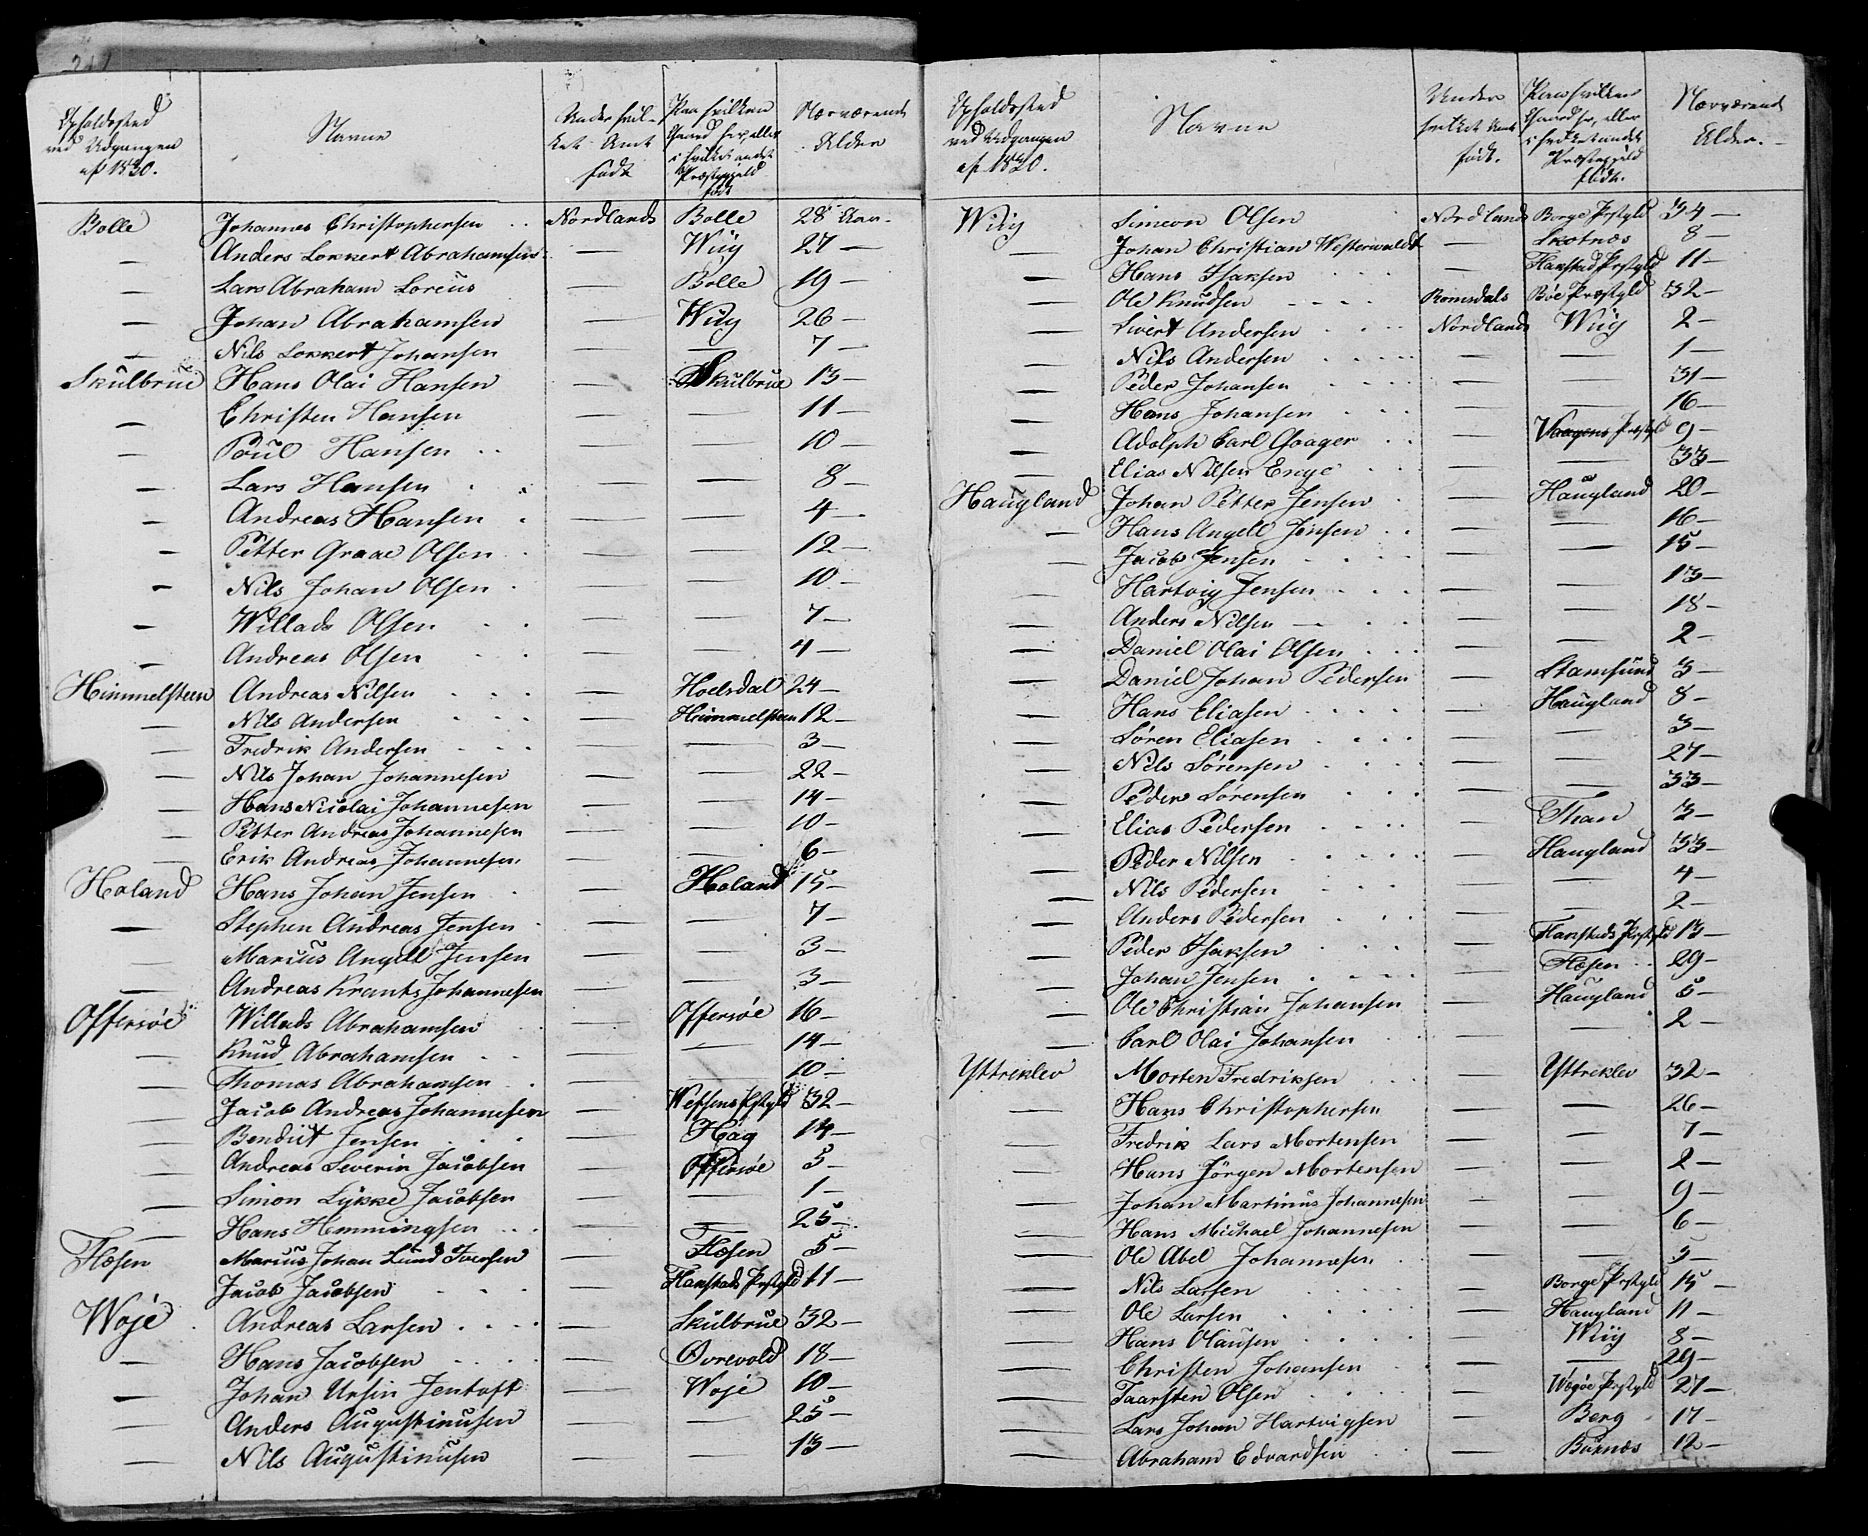 Opholdssted ved Udgangen af 1830. Navne Under hvilket Amt født Paa hvilken Gaard her, eller i hvilket andet Præstegjeld født Nærværende Alder
Bolle Johannes Christophersen Nordlands Bolle 28 Aar
— Anders Lokkert Abrahamsen — Wüg 27 —
— Lars Abraham Loreus — Bolle 19 —
— Johan Abrahamsen — Wüg 26 —
— Nils Lokkert Johansen — — 7 —
Skulbrue Hans Olai Hansen — Skulbrue 13 —
— Christen Hansen — — 11 —
— Poul Hansen — — 10 —
— Lars Hansen — — 8 —
— Andreas Hansen — — 4 —
— Petter Graae Olsen — — 12 —
— Nils Johan Olsen — — 10 —
— Willads Olsen — — 7 —
— Andreas Olsen — — 4 —
Himmelsteen Andreas Nilsen — Hoelsdal 24 —
— Nils Andersen — Himmelsteen 12 —
— Fredrik Andersen — — 3 —
— Nils Johan Johannesen — — 22 —
— Hans Nicolai Johannesen — — 14 —
— Petter Andreas Johannesen — — 10 —
— Erik Andreas Johannesen — — 6 —
Holand Hans Johan Jensen — Holand 15 —
— Stephen Andreas Jensen — — 7 —
— Marcus Angell Jensen — — 3 —
— Andreas Krantz Johannesen — — 3 —
Offersøe Willads Abrahamsen — Offersøe 16 —
— Knud Abrahamsen — — 14 —
— Thomas Abrahamsen — — 10 —
— Jacob Andreas Johannesen — Wefsens Prstgld 32 —
— Bendict Jensen — Hag 14 —
— Andreas Severin Jacobsen — Offersøe 5 —
— Simon Lykke Jacobsen — — 1 —
— Hans Hemmingsen — — 25 —
Flæsen Marcus Johan Lund Iversen — Flæsen 5 —
Jacob Jacobsen — Flakstads Prstgld 11 —
Woje Andreas Larsen — Skulbrue 32 —
— Hans Jacobsen — Ovrevold 18 —
— Johan Ursin Jentoft — Woje 10 —
— Anders Augustinusen — — 25 —
— Nils Augustinusen — — 13 —
Opholdssted ved Udgangen af 1830. Navne Under hvilket Amt født. Paa hvilken Gaard her, eller i hvilket andet Præstegjeld født. Nærværende Alder.
Wüg Simeon Olsen Nordlands Borge Prstgld 34 —
— Johan Christian Westerwaldt — Skotnæs 8 —
— Hans Isaksen — Flakstad Prstgld 11 —
— Ole Knudsen Romsdals Bøe Præstgld 32 —
— Sivert Andersen Nordlands Wüg 2 —
— Nils Andersen — — 1 —
— Peder Johansen — — 31 —
— Hans Johansen — — 16 —
— Adolph Carl Goager — Vaagens Prstgld 9 —
— Elias Nilsen Enge — — 33 —
Haugland Johan Petter Jensen — Haugland 20 —
— Hans Angell Jensen — — 16 —
— Jacob Jensen — — 15 —
— Hartvig Jensen — — 13 —
— Anders Nilsen — — 18 —
— Daniel Olai Olsen — — 2 —
— Daniel Johan Pedersen — Stamsund 3 —
— Hans Eliasen — Haugland 8 —
— Søren Eliasen — — 3 —
— Nils Sørensen — — 27 —
— Peder Sørensen — — 33 —
— Elias Pedersen — Than 3 —
— Peder Nilsen — Haugland 33 —
— Nils Pedersen — — 4 —
— Anders Pedersen — — 2 —
— Peder Isaksen — Flakstads Prstgld 13 —
— Johan Jensen — Flæsen 29 —
— Ole Christian Johansen — Haugland 5 —
— Carl Olai Johansen — — 2 —
Yttreklev Morten Fredriksen — Yttreklev 32 —
— Hans Christophersen — — 26 —
— Fredrik Lars Mortensen — — 7 —
— Hans Jörgen Mortensen — — 2 —
— Johan Martinus Johannesen — — 9 —
— Hans Michael Johannesen — — 6 —
— Ole Abel Johannesen — — 3 —
— Nils Larsen — Borge Prstgld 15 —
— Ole Larsen — Haugland 11 —
— Hans Olausen — Wüg 8 —
— Christen Johansen — — 29 —
— Taarsten Olsen — Wægøe Prstgld 27 —
— Lars Johan Hartvigsen — Berg 17 —
— Abraham Edvardsen — Buxnæs 12 —